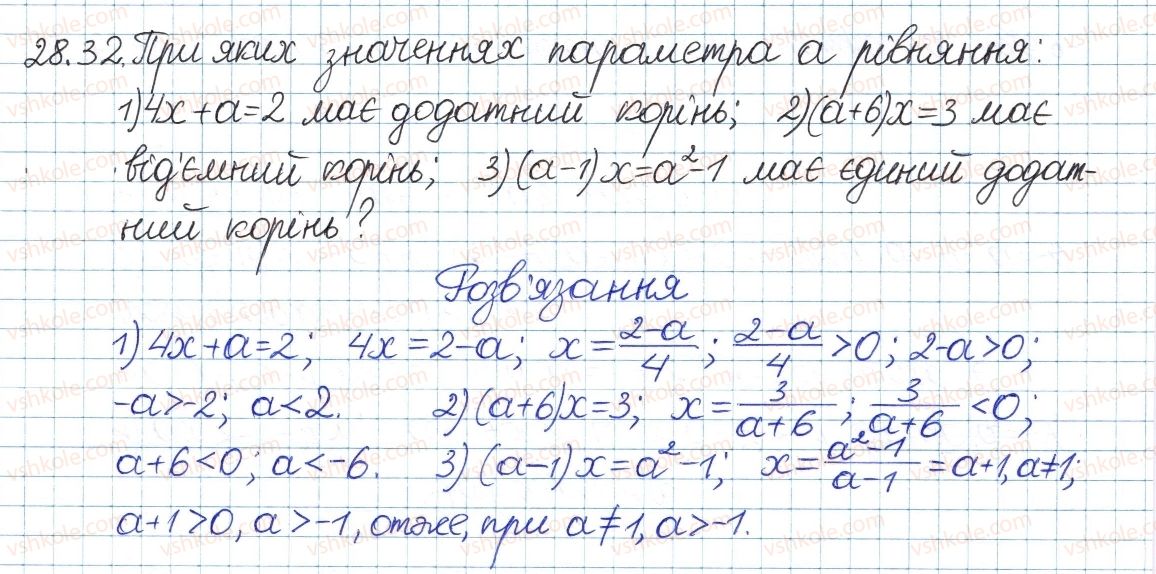 28.32. При яких значеннях параметра а рівняння:
1) 4x+a=2 має додатний корінь; 2) (a+6)x=3 має
від'ємний корінь; 3) (a-1)x=a²-1 має єдиний додат-
ний корінь?
Розв'язання
1) 4x+a=2; 4x=2-a; x=\frac{2-a}{4}; \frac{2-a}{4}>0; 2-a>0;
-a>-2; a<2. 2) (a+6)x=3; x=\frac{3}{a+6}; \frac{3}{a+6}<0;
a+6<0; a<-6. 3) (a-1)x=a²-1; x=\frac{a²-1}{a-1}=a+1, a≠1;
a+1>0, a>-1, отже, при a≠1, a>-1.